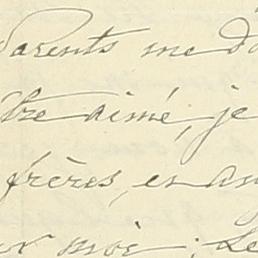 Parents me d
tre aimé, je
frères, en
moi ; Le